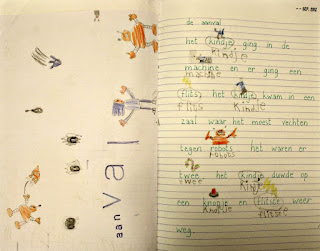 aan val
SEP. 2012
de aanval
het (kindje) ging in de
kindje
machine en er ging een
machine
(flits) het (kindje) kwam in een
flits kindje
zaal waar het moest vechten
tegen robots het waren er
robots
twee het (kindje duwde op
twee kindje
een knopje en (flitste) weer
knopje flitste
weg.